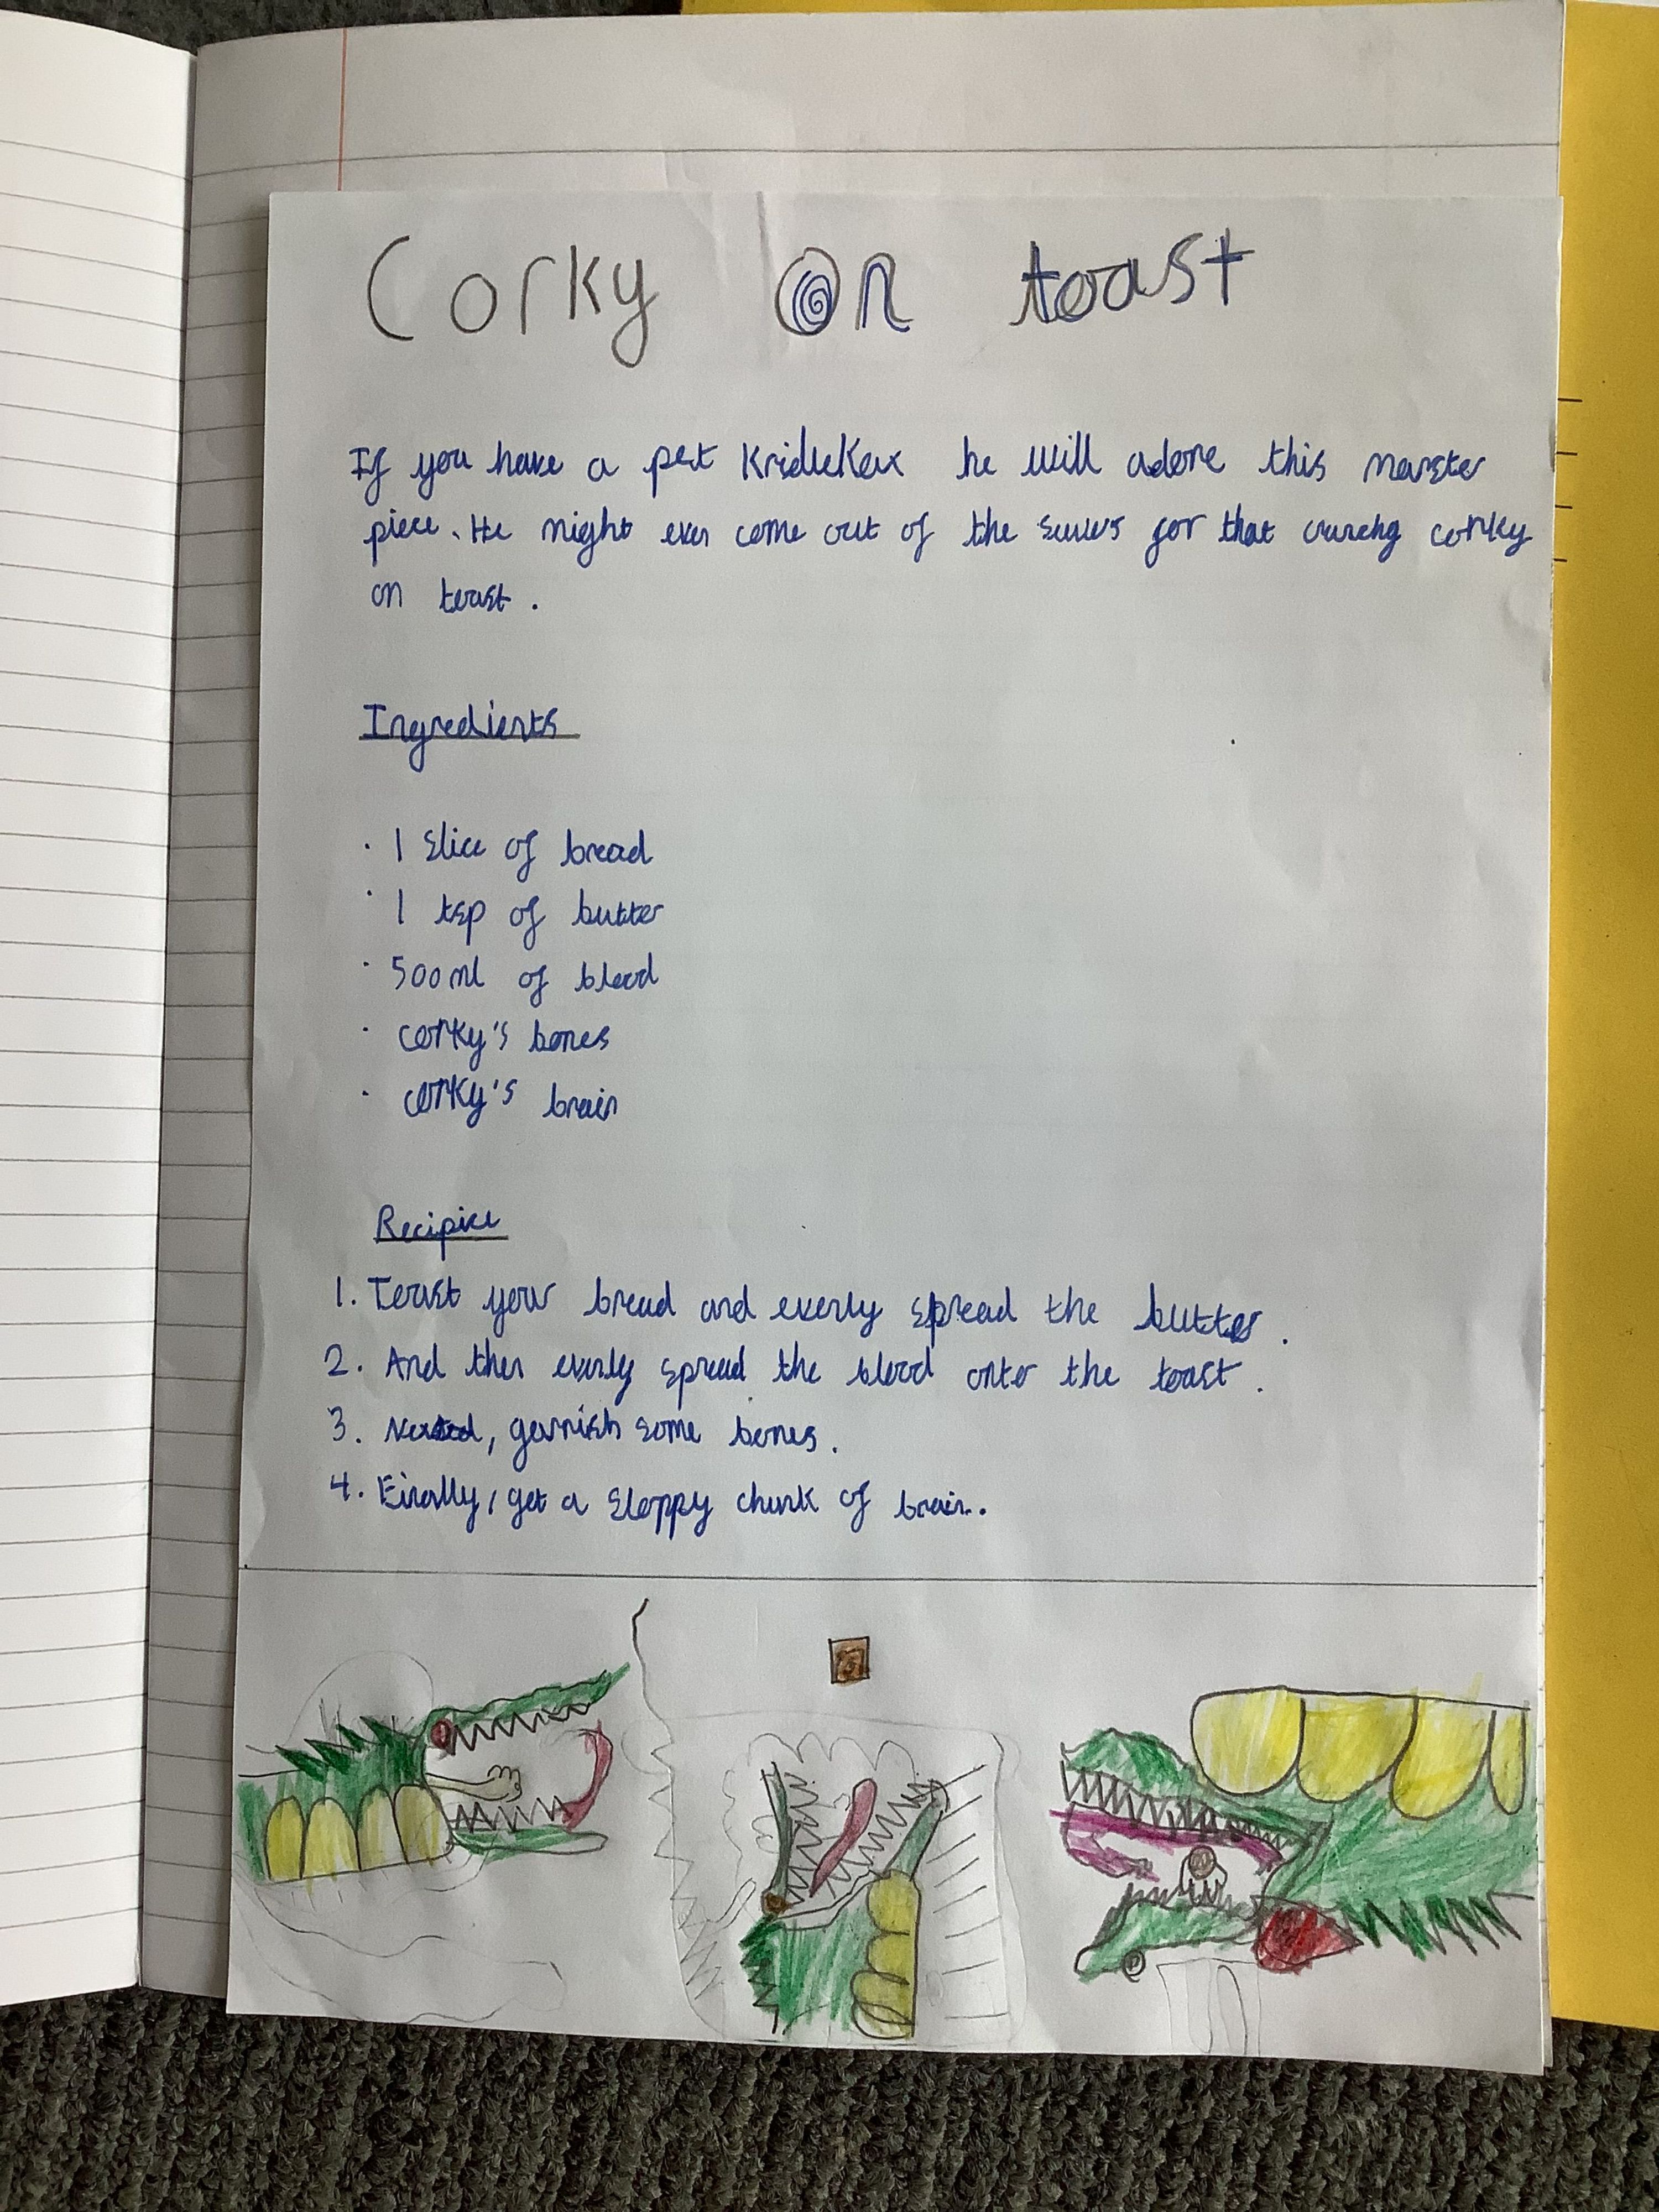 Corky On toast
If you have a pet KridleKax he will adore this marster
piece. He might even come out of the for that corky
on toast.
Ingredients
· 1 slice of bread
· 1 tsp of butter
· 500ml of blood
· corky's bones
· corky's brain
Recipice
1. Toast your bread and evenly spread the butter.
2. And then evenly spread the blood onto the toast.
3. , garnish some bones.
4. Finally, get a sloppy chunk of brain.